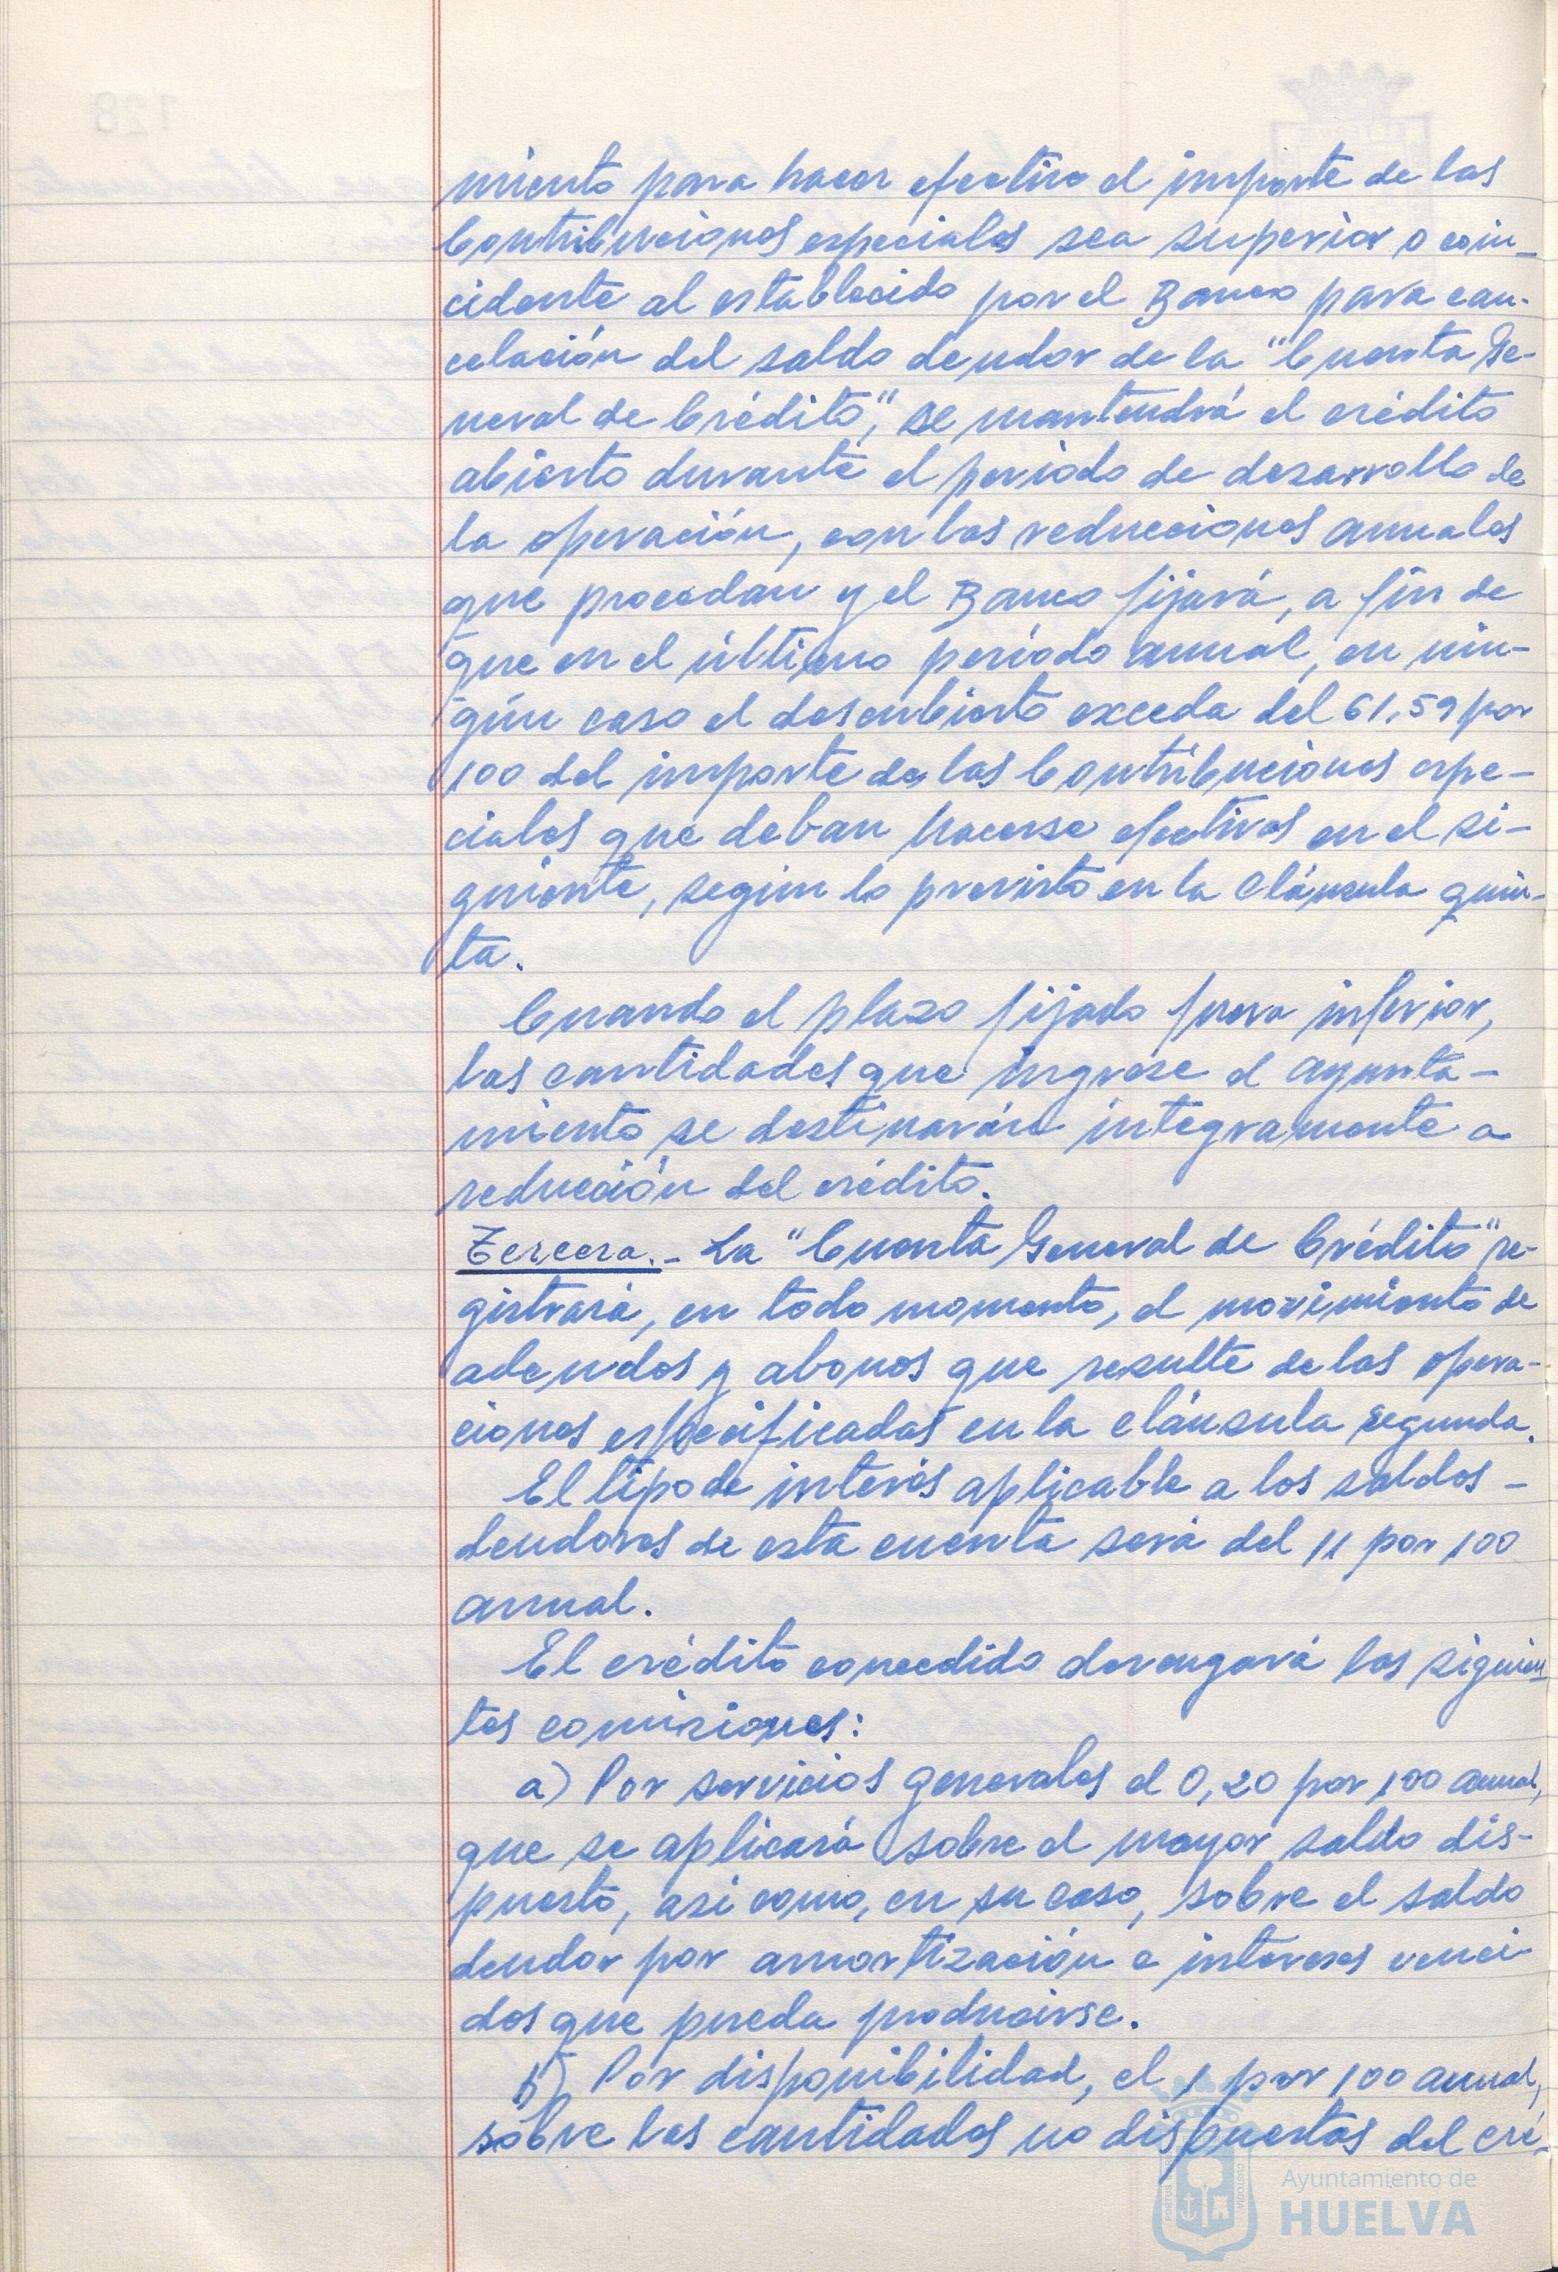 miento para hacer efectivo el importe de las
Contribuciones especiales sea superior o coin-
cidente al establecido por el Banco para can-
celación del saldo deudor de la "Cuenta Ge-
neral de Crédito", se mantendrá el crédito
abierto durante el periodo de desarrollo de
la operación, con las reducciones anuales
que procedan y el Banco fijará, a fin de
que en el último período anual, en nin-
gún caso el descubierto exceda del 61,59 por
100 del importe de las Contribuciones espe-
ciales que deban hacerse efectivas en el si-
guiente, según lo previsto en la cláusula quin-
ta.
Cuando el plazo fijado fuera inferior,
las cantidades que ingrese el Ayunta-
miento se destinarán integramente a
reducción del crédito.
Tercera.- La "Cuenta General de Crédito" re-
gistrará, en todo momento, el movimiento de
adeudos y abonos que resulte de las opera-
ciones especificadas en la cláusula segunda.
El tipo de interés aplicable a los saldos -
deudores de esta cuenta será del 11 por 100
anual.
El crédito concedido devengará las siguien-
tes comisiones:
a) Por servicios generales el 0,20 por 100 anual,
que se aplicará sobre el mayor saldo dis-
puesto, asi como, en su caso, sobre el saldo
deudor por amortización e intereses venci-
dos que pueda producirse.
b) Por disponibilidad, el 1 por 100 anual,
sobre las cantidades no dispuestas del cré-
Ayuntamiento de
HUELVA